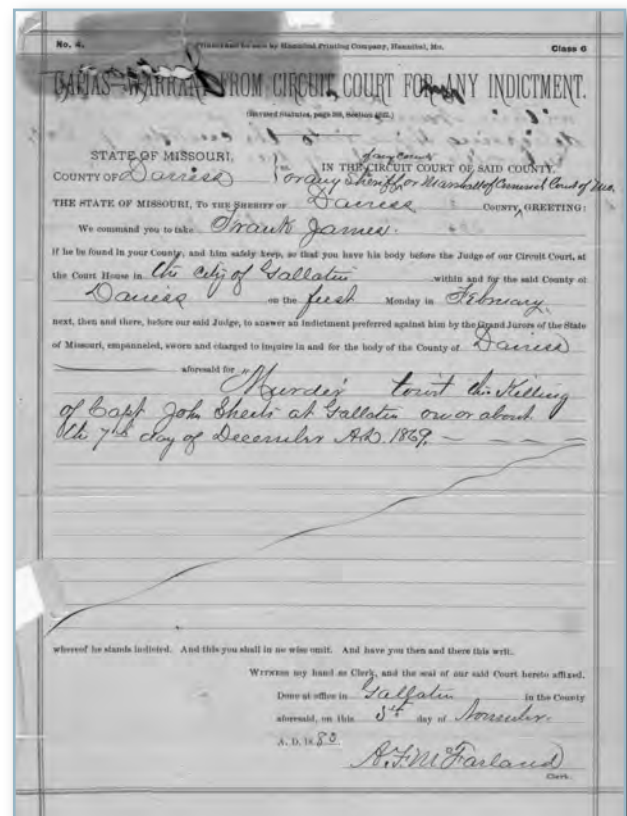 No. 4. Printed and for sale by Hannibal Printing Company, Hannibal, Mo. Class 6
CAPIAS WARRANT FROM CIRCUIT COURT FOR ANY INDICTMENT.
(Revised Statutes, page
STATE OF MISSOURI,
IN THE CIRCUIT COURT OF SAID COUNTY.
COUNTY OF Daviess or any Sheriff, or Marshall of Criminal Court of Mo.
THE STATE OF MISSOURI, TO THE SHERIFF OF Daviess COUNTY, GREETING:
We command you to take Frank James.
if he be found in your County, and him safely keep, so that you have his body before the Judge of our Circuit Court, at
the Court House in the City of Gallatin within and for the said County of
Daviess on the first Monday in February
next, then and there, before our said Judge, to answer an indictment preferred against him by the Grand Jurors of the State
of Missouri, empanneled, sworn and charged to inquire in and for the body of the County of Daviess
aforesaid for "Murder towit the Killing
of Capt John Sheets at Gallatin on or about
the 7th day of December A.D. 1869.
whereof he stands indicted. And this you shall in no wise omit. And have you then and there this writ.
WITNESS my hand as Clerk, and the seal of our said Court hereto affixed.
Done at office in Gallatin in the County
aforesaid, on this day of November.
A. D. 18
A.F. McFarland
Clerk.